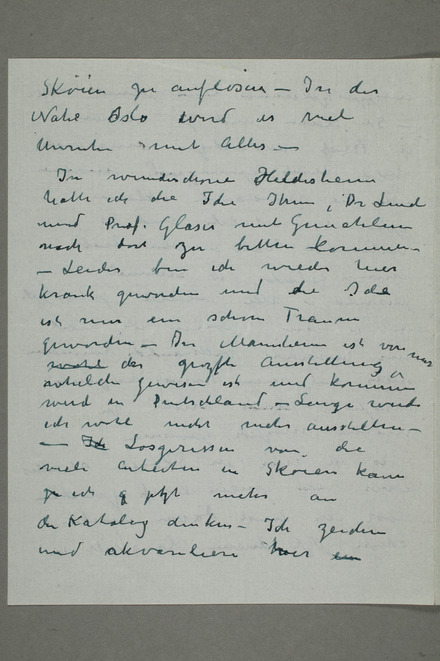 Skøien zu auflösen – In der
Nähe Oslo wird es viel
Unruhe und Alles –
In wunderschöne Hildesheim
hatte ich die Ide Ihnen, Dr Lund
und Prof. Glaser mit Gemahlin
nach dort zu bitten kommen –
– Leider bin ich wieder hier
krank geworden und die Ide
ist nur ein schön Traum
geworden – In Mannheim ist von mir
wohl der groszte Ausstellung
gewesen ist und kommen
wird in Deutschland – Lange werde
ich wohl nicht mehr ausstellen –
– Ich Losgerissen von die
viele Arbeiten in Skøien kann
ich jetzt mehr an
den Katalog denken – Ich zeichne
und akvareliere hier ein